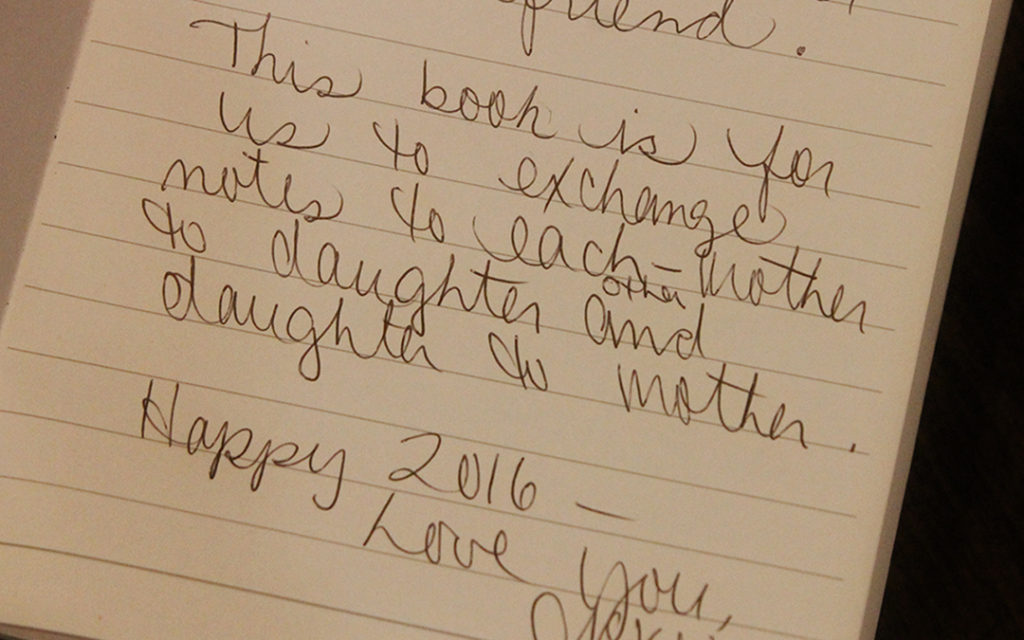 friend.
This book is for
us to exchange
notes to each - mother
other
to daughter and
daughter to mother.
Happy 2016 —
Love you,